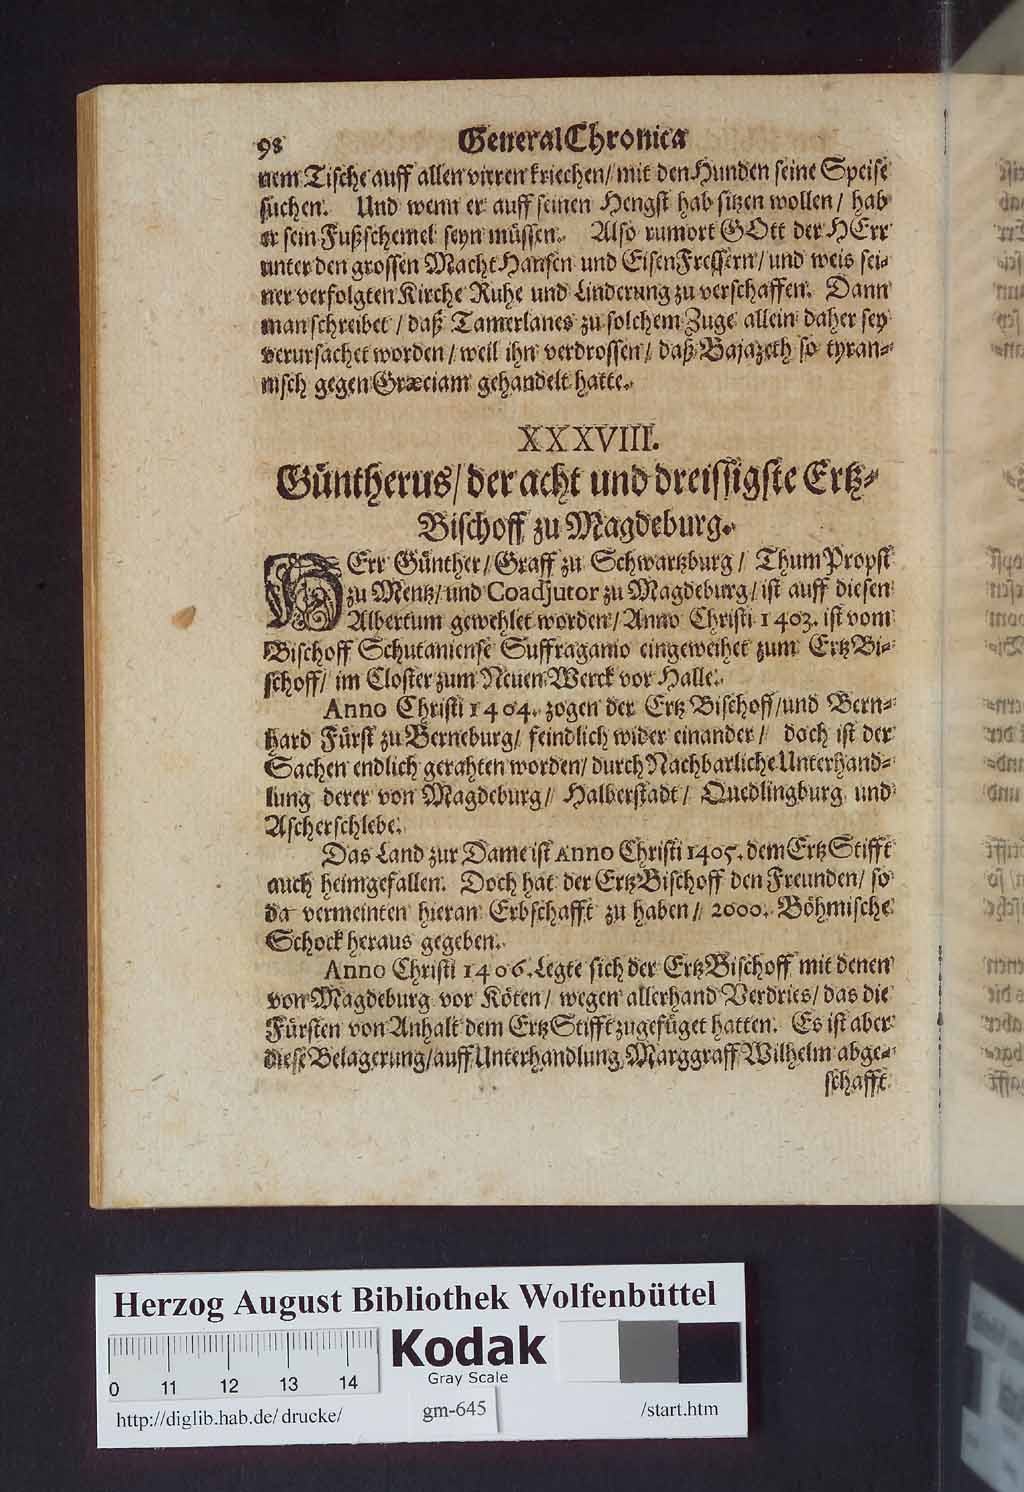 98 GeneralChronica
nem Tische auff allen vieren kriechen/ mit den Hunden seine Speise
suchen. Und wenn er auff seinen Hengst hab sitzen wollen/ hab
er sein Fußschemel seyn müssen. Also rumort GOtt der HErr
unter den grossen MachtHansen und EisenFressern/ und weis sei-
ner verfolgten Kirche Ruhe und Linderung zu verschaffen. Dann
man schreibet/ daß Tamerlanes zu solchem Zuge allein daher sey
verursachet worden/ weil ihn verdrossen/ daß Bajazeth so tyran-
nisch gegen Græciam gehandelt hatte.
XXXVIII.
Güntherus/ der acht und dreissigste Ertz-
Bischoff zu Magdeburg.
HErr Günther/ Graff zu Schwartzburg/ ThumPropst
zu Mentz/ und Coadjutor zu Magdeburg/ ist auff diesen
Albertum gewehlet worden/ Anno Christi 1403. ist vom
Bischoff Schutaniense Suffraganio eingeweihet zum ErtzBi-
schoff/ im Closter zum Neuen Werck vor Halle.
Anno Christi 1404. zogen der Ertz Bischoff/ und Bern-
hard Fürst zu Berneburg/ feindlich wider einander/ doch ist der
Sachen endlich gerahten worden/ durch Nachbarliche Unterhand-
lung derer von Magdeburg/ Halberstadt/ Quedlingburg und
Ascherschlebe.
Das Land zur Dame ist Anno Christi 1405. dem ErtzStifft
auch heimgefallen. Doch hat der ErtzBischoff den Freunden/ so
da vermeinten hieran Erbschafft zu haben/ 2000. Böhmische
Schock heraus gegeben.
Anno Christi 1406. legte sich der ErtzBischoff mit denen
von Magdeburg vor Köten/ wegen allerhand Verdries/ das die
Fürsten von Anhalt dem ErtzStifft zugefüget hatten. Es ist aber
diese Belagerung/ auff Unterhandlung Marggraff Wilhelm abge-
schafft
Herzog August Bibliothek Wolfenbüttel
Kodak
Gray Scale
0 11 12 13 14
http://diglib.hab.de/drucke/ gm-645 /start.htm